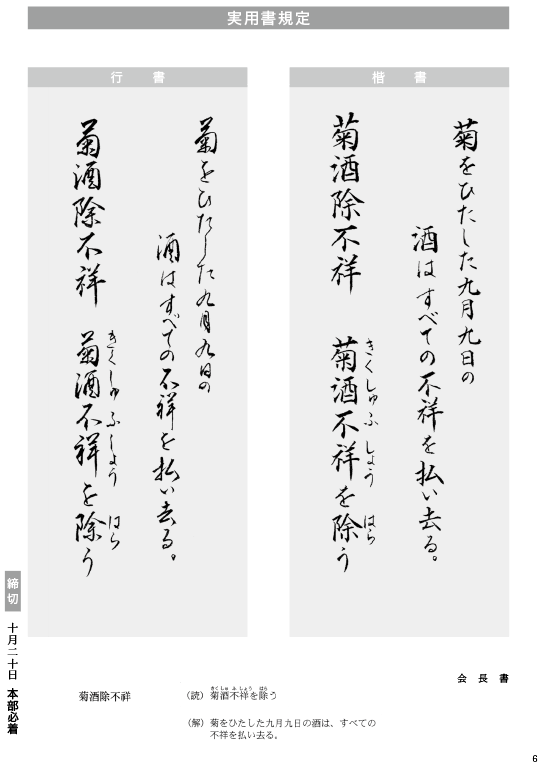 実用書規定
楷書
菊をひたした九月九日の
酒はすべての不祥を払い去る。
きくしゅふしょう はら
菊酒除不祥 菊酒不祥を除う
行書
菊をひたした九月九日の
酒はすべての不祥を払い去る。
きくしゅふしょう はら
菊酒除不祥 菊酒不祥を除う
締切
十月二十日 本部必着
会長書
菊酒除不祥
きくしゅ ふ しょう はら
(読) 菊酒不祥を除う
(解) 菊をひたした九月九日の酒は、すべての
不祥を払い去る。
6